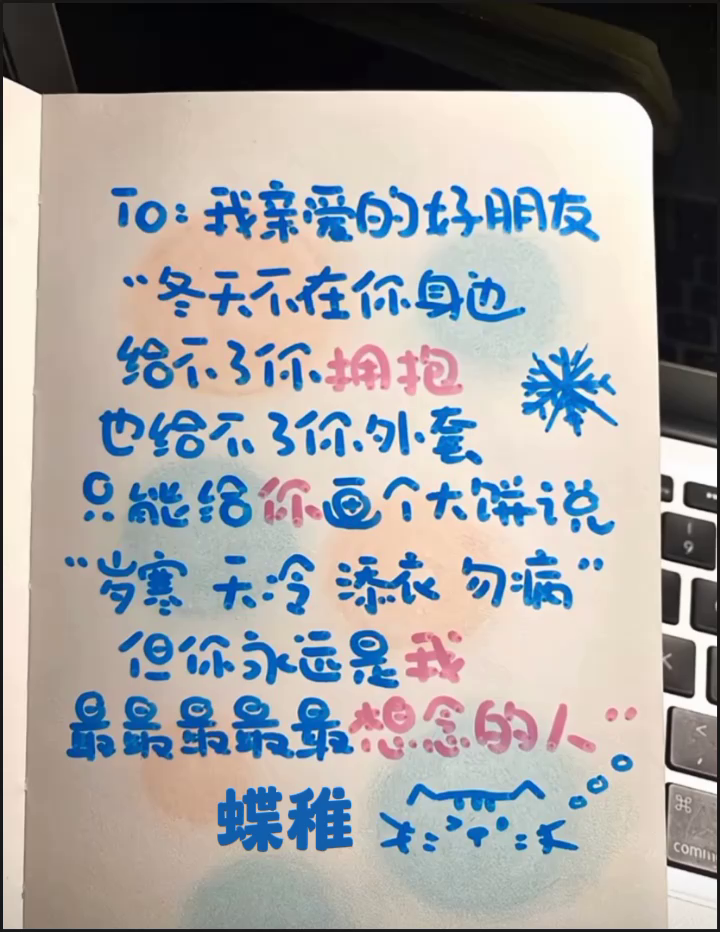 To：我亲爱的好朋友
“冬天不在你身边
给不了你拥抱
也给不了你外套
只能给你画个大饼说
“岁寒 天冷 添衣 勿病”
但你永远是我
最最最最最想念的人”
蝶稚
9
<
⌘
comm